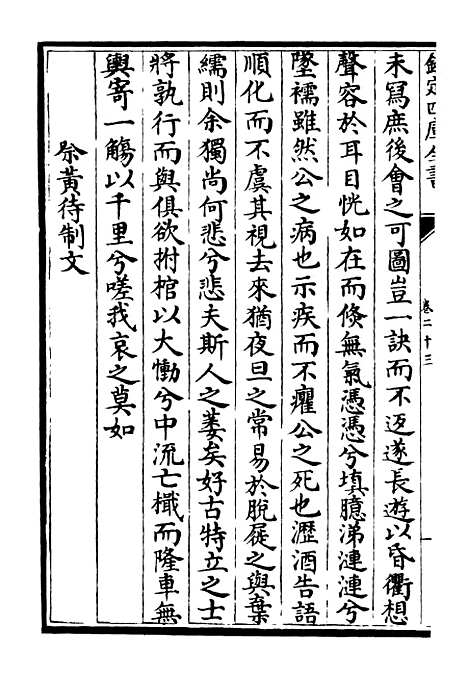 欽定四庫全書
卷二十三
未冩庶後會之可圖豈一訣而不返遂長遊以昏衢想
聲容於耳目恍如在而倐無氣憑憑兮填臆涕漣漣兮
墜襦雖然公之病也示疾而不癯公之死也瀝酒告語
順化而不虞其視去來猶夜旦之常易於脫屣之與棄
繻則余獨尚何悲兮悲夫斯人之萎矣好古特立之士
將孰行而與俱欲拊棺以大慟兮中流亡檝而隆車無
輿寄一觴以千里兮嗟我哀之莫如
祭黃待制文